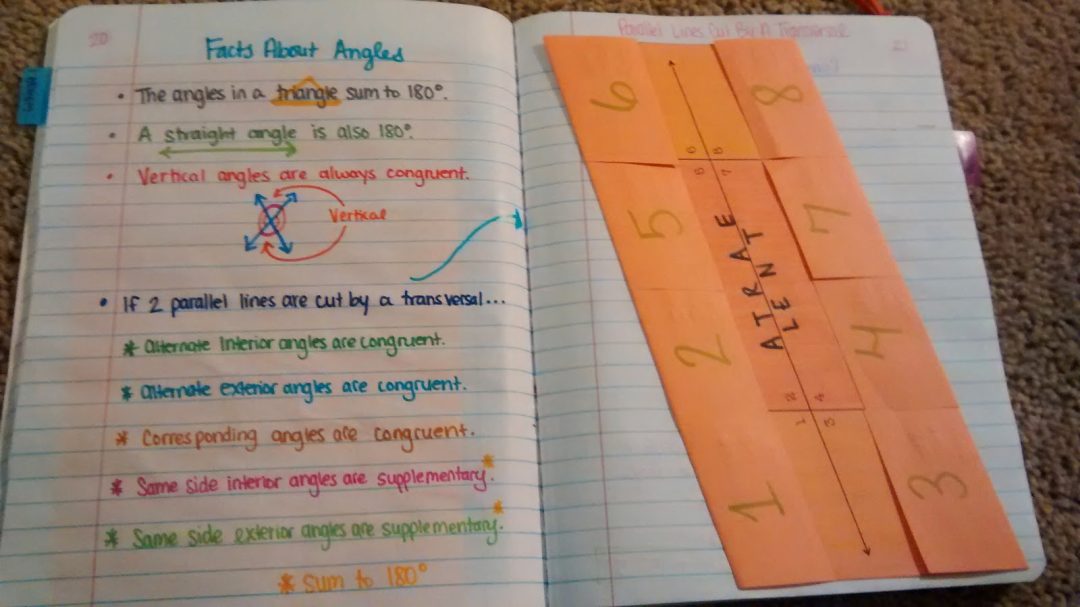 20
Facts About Angles
• The angles in a triangle sum to 180°.
• A straight angle is also 180°.
• Vertical angles are always congruent.
Vertical
• If 2 parallel lines are cut by a transversal...
* Alternate Interior angles are congruent.
* Alternate exterior angles are congruent.
* Corresponding angles are congruent.
* Same side interior angles are supplementary.*
* Same side exterior angles are supplementary.*
* Sum to 180°
Parallel Lines Cut By A Transversal
21
6
8
6
8
5
7
5
7
ALTERNATE
2
4
2
4
1
3
1
3